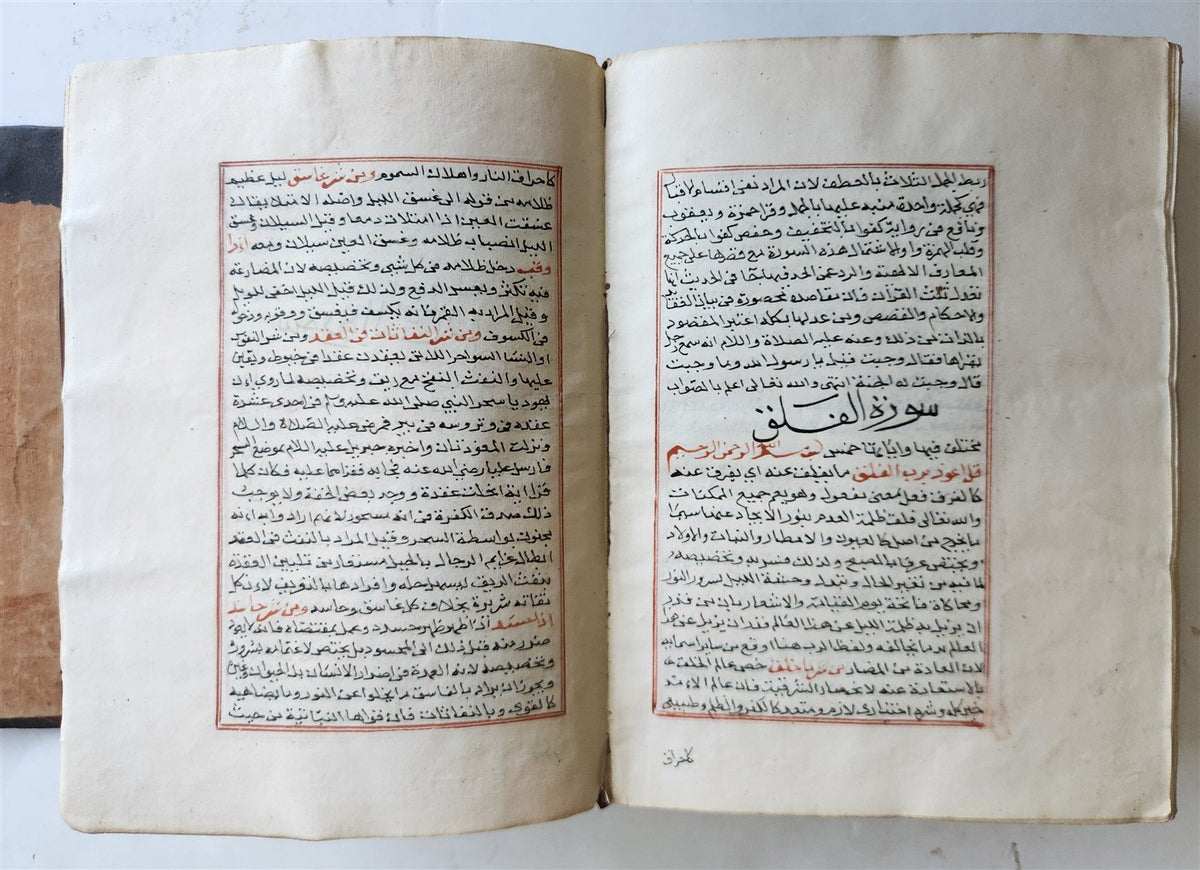 ربط الجمل الثلاث بالعطف لان المراد نفي اقسام الامثال
فهي كجملة واحدة منبه عليها بالجمل وقرا حمزة ويعقوب
ونافع في رواية كفوا بالتخفيف وحفص كفوا بالحركة
وقلب الهمزة واوا ولاشتمال هذه السورة مع قصرها على جميع
المعارف الالهية والرد على من الحد فيها جا في الحديث انها
تعدل ثلث القران فان مقاصده محصورة في بيان العقائد
والاحكام والقصص ومن عدلها بكله اعتبر المقصود
بالذات من ذلك وعنه عليه الصلاة والسلام انه سمع رجلا
يقراها فقال وجبت قيل يا رسول الله وما وجبت
قال وجبت له الجنة انتهى والله تعالى اعلم بالصواب
سورة الفلق
مختلف فيها وايا تها خمس بسم الله الرحمن الرحيم
قل اعوذ برب الفلق ما يفلق عنه اي يفرق عنه
كالفرق فعل بمعنى مفعول وهو يعم جميع الممكنات
والله تعالى فلق ظلمة العدم بنور الايجاد عنها سيما
ما يخرج من اصل كالعيون والامطار والنبات والاولاد
ويختص عرفا بالصبح ولذلك فسر به وتخصيصه
لما فيه من تغير الحال وتبدل وحشة الليل بسرور النور
ومحاكاة فاتحة يوم القيامة والاشعار بان من قدر
ان يزيل به ظلمة الليل عن هذا العالم قدر ان يزيل عن هذا
العالم ما يخافه ولفظ الرب هنا اوقع من ساير اسمايه
لان الاعاذة من المضار من شر ما خلق خص عالم الخلق
بالاستعاذة عنه لانحصار الشر فيه فان عالم الامر
خير كله وشره اختياري لازم ومتعد كالكفر والظلم وطبيعي
كاحراق
كاحراق النار واهلاك السموم ومن شر غاسق ليل عظيم
ظلامه من قوله الى غسق الليل واصله الامتلا يقال
غسقت العين اذا امتلات دمعا وقيل السيلان وغسق
الليل انصباب ظلامه وغسق العين سيلان دمعه اذا
وقب دخل ظلامه في كل شي وتخصيصه لان المضار
فيه تكثر ويعسر الدفع ولذلك قيل الليل اخفى للويل
وقيل المراد به القمر فانه يكسف فيغسق ووقوبه دخوله
في الكسوف ومن شر النفاثات في العقد ومن شر النفوس
او النسا السواحر اللاتي يعقدن عقدا في خيوط وينفثن
عليها والنفث النفخ مع ريق وتخصيصه لما روي ان
يهوديا سحر النبي صلى الله عليه وسلم في احدى عشرة
عقدة في وتر دسه في بير فمرض عليه الصلاة والسلام
ونزلت المعوذتان واخبره جبريل عليه السلام بموضع السحر
فارسل عليا رضي الله عنه فجا به فقراهما عليه فكان كلما
قرا اية انحلت عقدة ووجد بعض الخفة ولا يوجب
ذلك صدق الكفرة في انه مسحور لانهم ارادوا به انه
مجنون بواسطة السحر وقيل المراد بالنفث في العقد
ابطال عزايم الرجال بالحيل مستعار من تليين العقدة
بنفث الريق ليسهل حله وافرادها بالتعريف لان كل
نفاثة شريرة بخلاف كل غاسق وحاسد ومن شر حاسد
اذا حسد اذا ظهر حسده وعمل بمقتضاه فانه لا يعود
ضرره منه قبل ذلك الى المحسود بل يختص به لاغتمامه بسروره
وتخصيصه لانه العمدة في اضرار الانسان بل الحيوان وغيره
ويجوز ان يراد بالغاسق ما يخلو عن النور وما يضاهيه
كالقوى وبالنفاثات فان قواها النباتية من حيث